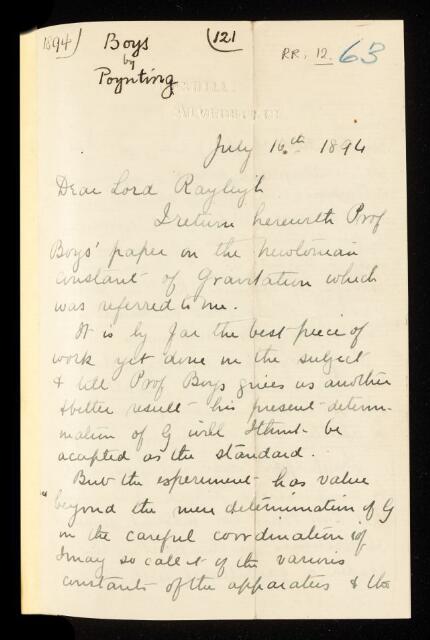 1894)
Boys
by
Poynting
(121
RR. 12. 63
July 16th 1894
Dear Lord Rayleigh
I return herewith Prof
Boys' paper on the Newtonian
constant of Gravitation which
was referred to me.
It is by far the best piece of
work yet done on the subject
& till Prof Boys gives us another
& better result his present determi-
nation of G will I think be
accepted as the standard.
But the experiment has value
"beyond the mere determination of G
in the careful coordination if
I may so call it of the various
constants of the apparatus & the